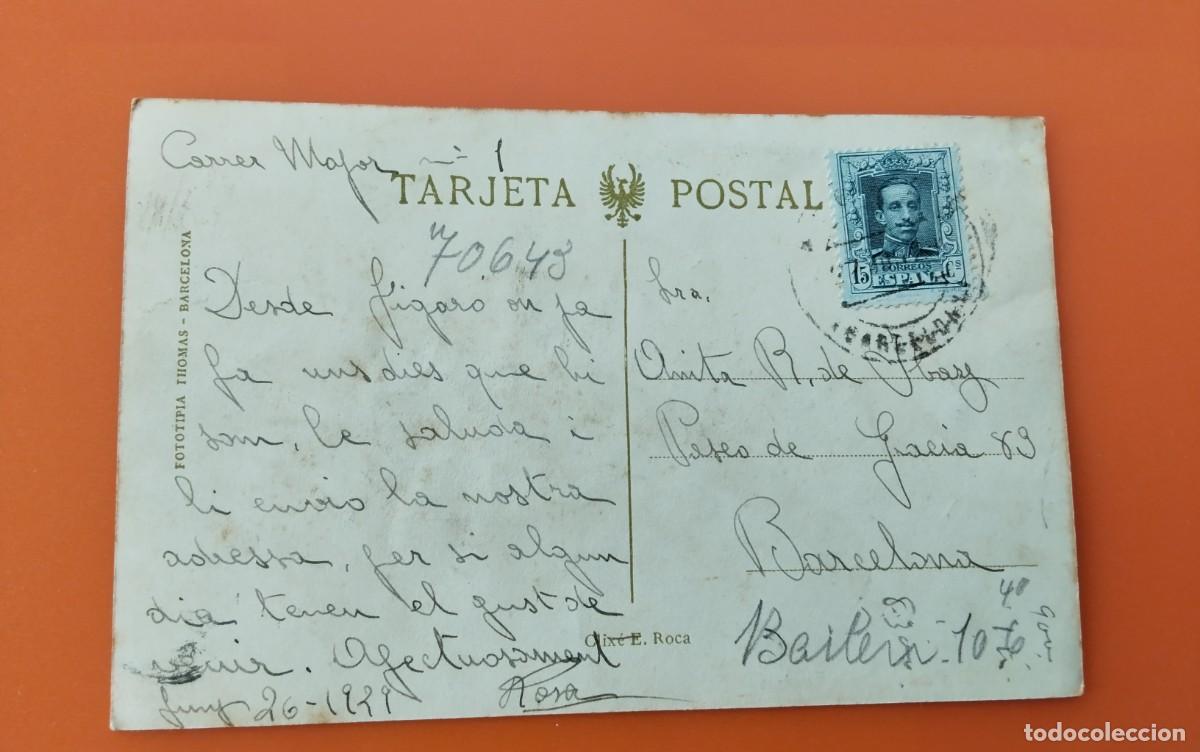 Carrer Major nº 1
TARJETA POSTAL
70643
FOTOTIPIA THOMAS - BARCELONA
Desde Figaro on ja
fa uns dies que hi
som, le saluda i
li envio la nostra
adressa, per si algun
dia tenen el gust de
venir. Afectuosament
Rosa
Juny 26-1929
Clixé E. Roca
15 Cs
CORREOS
ESPAÑA
BARCELONA
Sra.
Anita R. de
Paseo de Gracia 83
Barcelona
40
todocoleccion